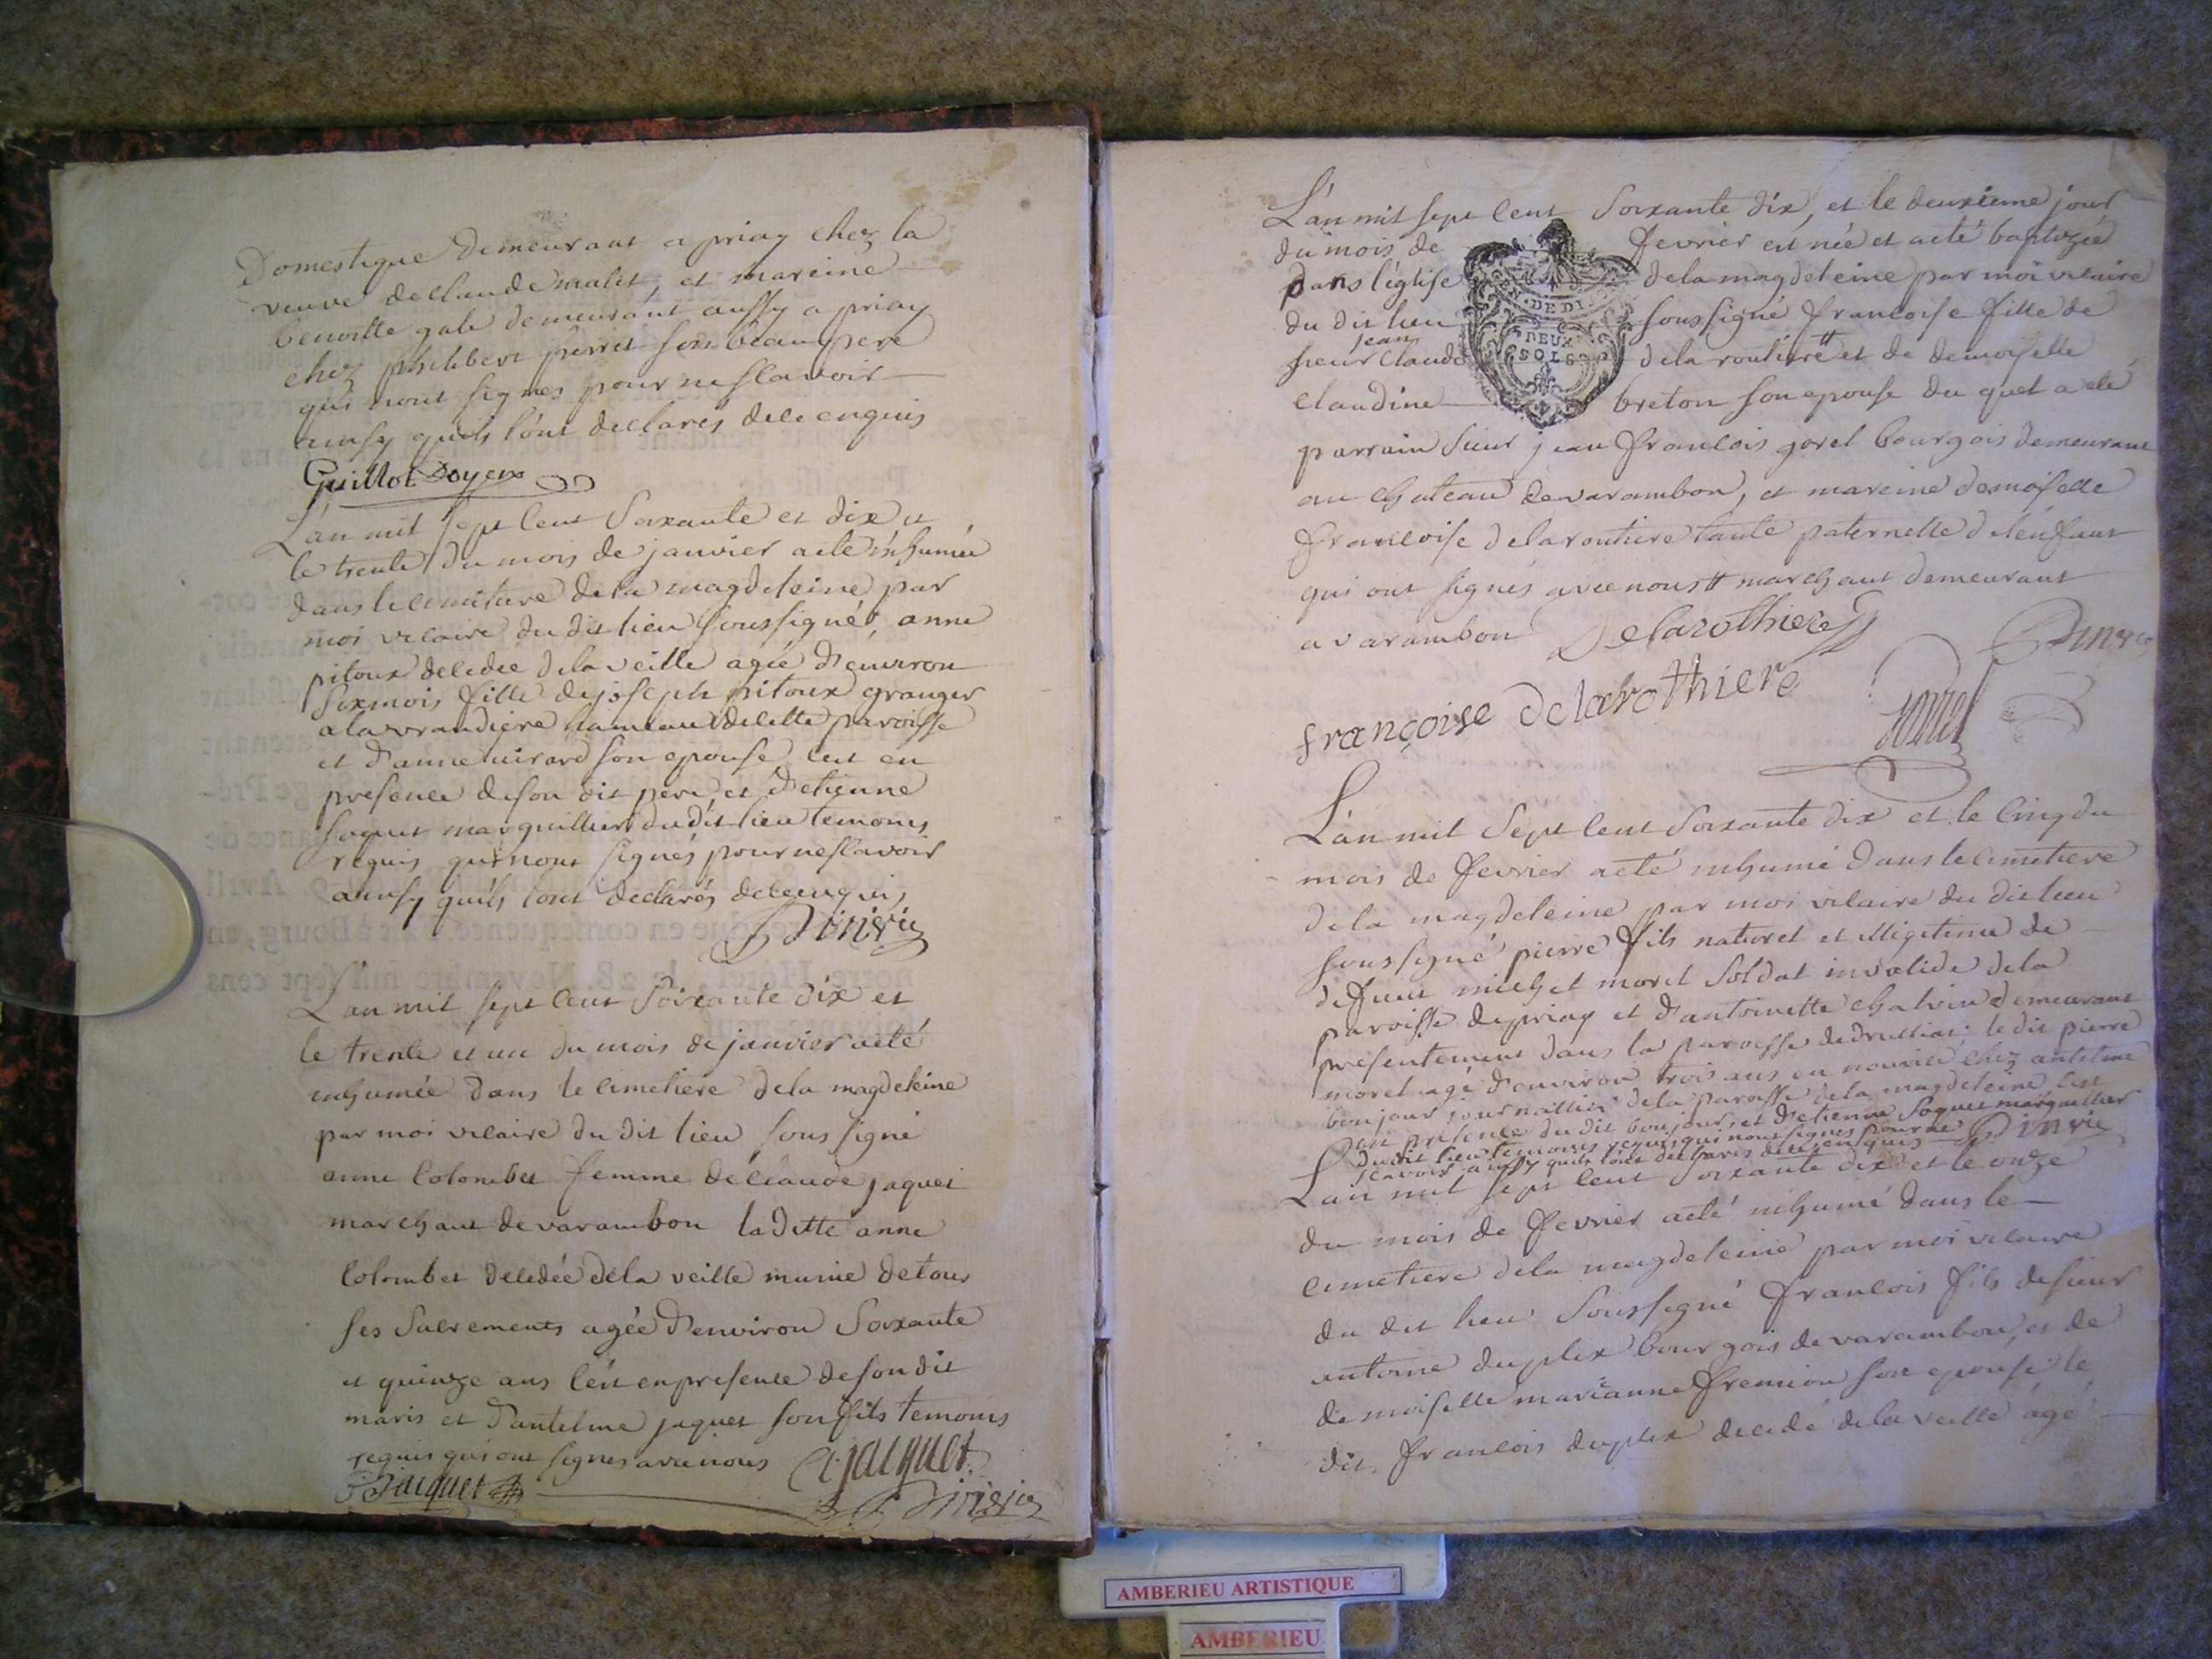 Domestique demeurant a priay chez la
veuve de claude malet, et mareine
benoitte gale demeurant aussy a priay
chez philibert perret son beaupere
qui n'ont signes pour ne scavoir
ainsy quils l'ont declarés de ce enquis
Guillot Doyen
L'an mil sept cent soixante et dix et
le trente du mois de janvier a ete inhumée
dans le cimitiere de la magdeleine par
moi vicaire du dit lieu soussigné, anne
pitoux decedee de la veille agée d'environ
six mois fille de joseph pitoux granger
a la vrandiere hameau de cette paroisse
et d'anne son epouse, c'est en
presence de son dit pere, et d'etienne
soquet marguillier du dit lieu temoins
requis qui n'ont signés pour ne scavoir
ainsy qu'ils l'ont declarés de ce enquis,
L'an mil sept cent soixante dix et
le trente et un du mois de janvier a eté
inhumée dans le cimetiere de la magdeleine
par moi vicaire du dit lieu soussigné
anne Colombet femme de claude jaquet
marchant de varambon la ditte anne
Colombet decedée de la veille munie de tous
ses sacrements agée d'environ soixante
et quinze ans c'est en presence de son dit
maris et d'antelme jaquet son fils temoins
requis qui ont signes avec nous jacquet
Jacquet
L'an mil sept cent soixante dix, et le deuxieme jour
du mois de fevrier est née et a eté baptizée
dans l'église de la magdeleine par moi vicaire
du dit lieu soussigné francoise fille de
jean
sieur Claude de la routiere # et de demoiselle
Claudine breton son epouse du quel a eté
EN. DE DI
DEUX
SOLS
parrain sieur jean francois gorel bourgois demeurant
au chateau de varambon, et mareine demoiselle
francoise de la routiere tante paternelle de l'enfant
qui ont signés avec nous # marchant demeurant
a varambon Delarothiere
françoise Delarothiere
L'an mil sept cent soixante dix et le cinq du
mois de fevrier a eté inhumé dans le cimetiere
de la magdeleine par moi vicaire du dit lieu
soussigné pierre fils naturel et illigetime de
defunt michel morel soldat invalide de la
paroisse de priay et d'antoinette chatrin demeurant
presentement dans la paroisse de druillat; le dit pierre
morel agé d'environ trois ans en nourice chez antelme
boujour journallier de la paroisse de la magdeleine c'est
en presence du dit boujour, et d'etienne soquet marguillier
du dit lieu temoins requis qui n'ont signes pour ne
scavoir ainsy quils l'ont declarés de ce enquis
L'an mil sept cent soixante dix et le onze
du mois de fevrier a eté inhumé dans le
cimetiere de la magdeleine par moi vicaire
du dit lieu soussigné francois fils de sieur
antoine duplex bourgois de varambon, et de
demoiselle marianne fremion son epouse le
dit francois duplex decedé de la veille agé
AMBERIEU ARTISTIQUE
AMBERIEU